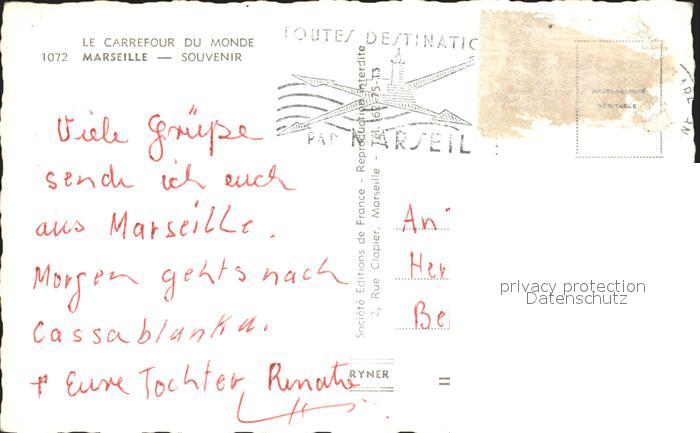 LE CARREFOUR DU MONDE
1072 MARSEILLE — SOUVENIR
TOUTES DESTINATIO
PAR MARSEIL
PHOTOGRAPHIE
VÉRITABLE
Viele Grüße
sende ich euch
aus Marseille.
Morgen gehts nach
Cassablanka.
Eure Tochter Renate
Société Editions de France - Reproduction interdite
2, Rue Clapier, Marseille - Tél. 62-75-13
RYNER
An
Her
Be
privacy protection
Datenschutz